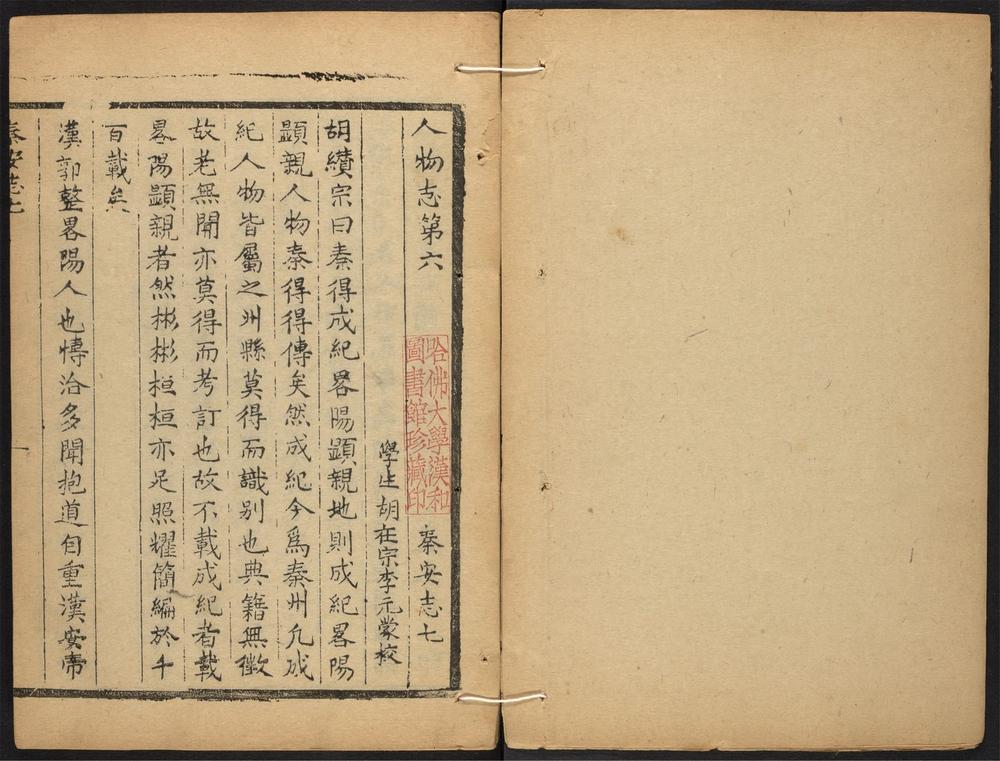 人物志第六 秦安志七
學生胡在宗李元蒙校
胡纘宗曰秦得成紀畧陽顯親地則成紀畧陽
顯親人物秦得得傳矣然成紀今爲秦州凢成
紀人物皆屬之州縣莫得而識别也典籍無徵
故老無聞亦莫得而考訂也故不載成紀者載
畧陽顯親者然彬彬桓桓亦足照耀簡編於千
百載矣
漢郭整畧陽人也愽洽多聞抱道自重漢安帝
秦安志七
一
哈佛大學漢和
圖書館珍藏印